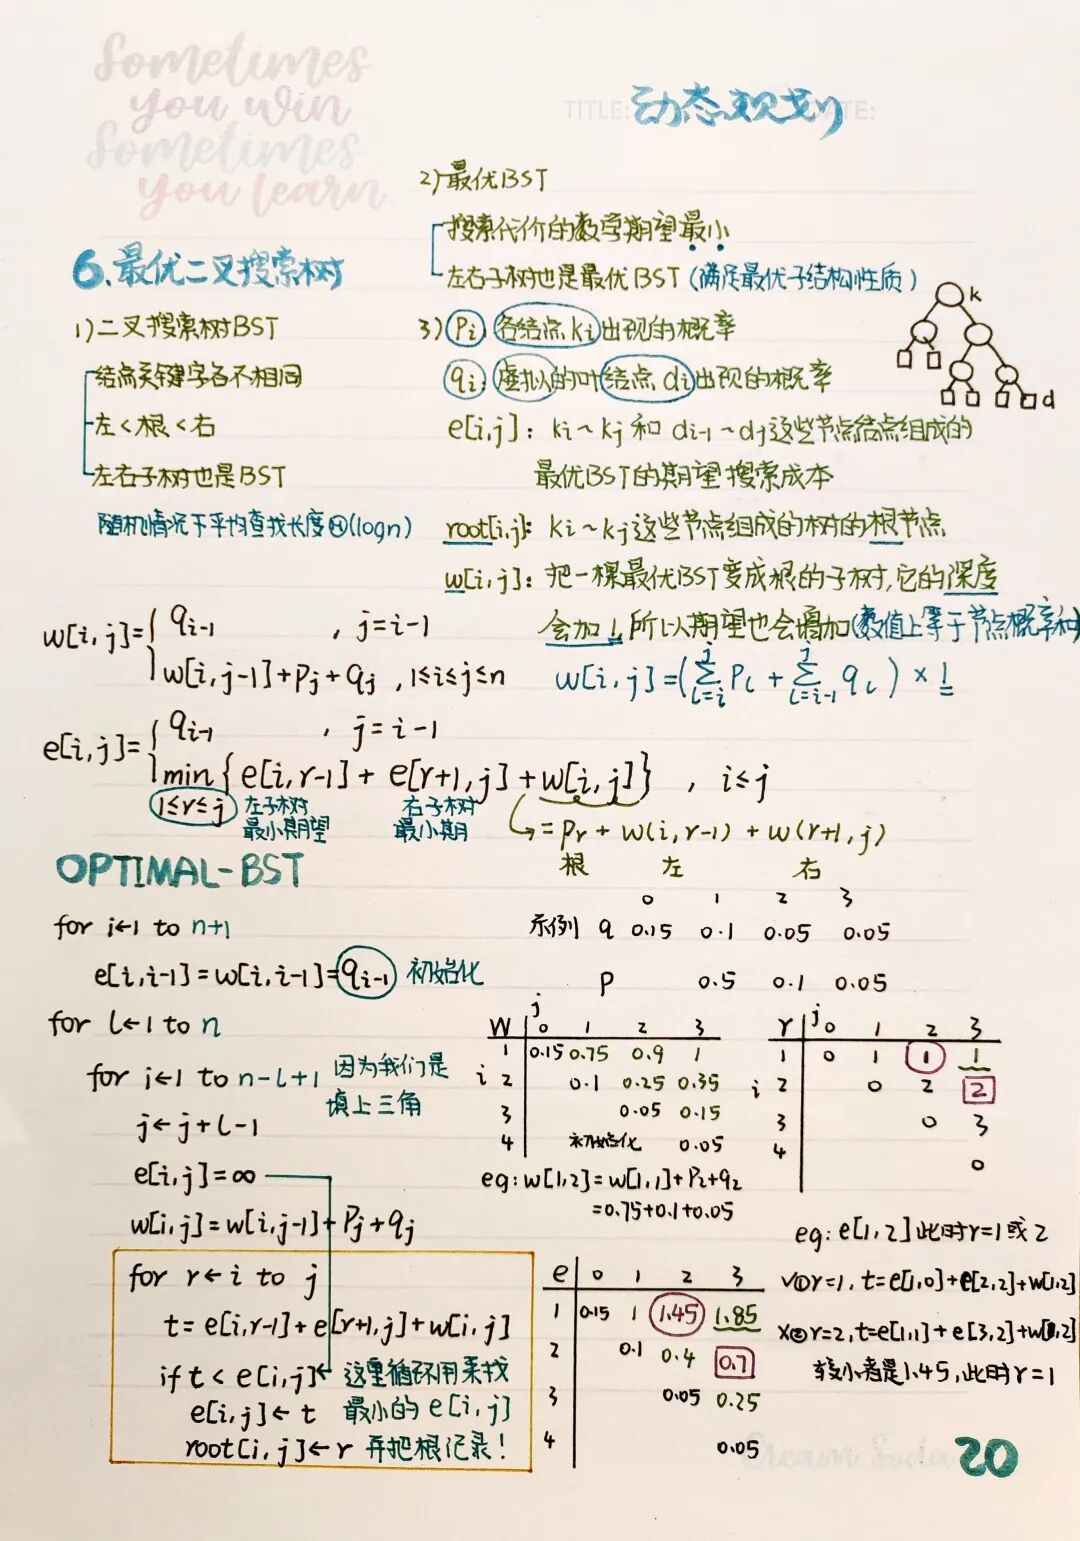 Sometimes
you win
Sometimes
you learn
TITLE: 动态规划 DATE:
6.最优二叉搜索树
1)二叉搜索树BST
结点关键字各不相同
左<根<右
左右子树也是BST
随机情况下平均查找长度Θ(logn)
2)最优BST
搜索代价的数学期望最小
左右子树也是最优BST(满足最优子结构性质)
k
d
3) Pi 各结点ki出现的概率
qi 虚拟的叶结点di出现的概率
e[i,j]: ki~kj 和 di-1~dj这些节点结点组成的
最优BST的期望搜索成本
root[i,j]: ki~kj这些节点组成的树的根节点
w[i,j]: 把一棵最优BST变成根的子树,它的深度
会加1,所以期望也会增加(数值上等于节点概率和)
w[i,j]=(∑_{l=i}^{j} Pl + ∑_{l=i-1}^{j} ql) × 1
w[i,j]={ qi-1 , j=i-1
w[i,j-1]+Pj+qj , 1≤i≤j≤n
e[i,j]={ qi-1 , j=i-1
min{e[i,r-1]+e[r+1,j]+w[i,j]} , i≤j
1≤r≤j 左子树 右子树
最小期望 最小期
=Pr+w(i,r-1)+w(r+1,j)
根 左 右
OPTIMAL-BST
for i←1 to n+1
e[i,i-1]=w[i,i-1]=qi-1 初始化
for l←1 to n
for i←1 to n-l+1 因为我们是
填上三角
j←j+l-1
e[i,j]=∞
w[i,j]=w[i,j-1]+Pj+qj
for r←i to j
t=e[i,r-1]+e[r+1,j]+w[i,j]
if t<e[i,j] 这里循环用来找
e[i,j]←t 最小的e[i,j]
root[i,j]←r 再把根记录!
0 1 2 3
示例 q 0.15 0.1 0.05 0.05
P 0.5 0.1 0.05
W j 0 1 2 3
1 0.15 0.75 0.9 1
i 2 0.1 0.25 0.35
3 0.05 0.15
4 初始化 0.05
eg:w[1,2]=w[1,1]+P2+q2
=0.75+0.1+0.05
r j 0 1 2 3
1 0 1 1 1
i 2 0 2 2
3 0 3
4 0
e 0 1 2 3
1 0.15 1 1.45 1.85
2 0.1 0.4 0.7
3 0.05 0.25
4 0.05
eg: e[1,2]此时r=1或2
√①r=1, t=e[1,0]+e[2,2]+w[1,2]
×②r=2,t=e[1,1]+e[3,2]+w[1,2]
较小者是1.45,此时r=1
Cream Soda
20